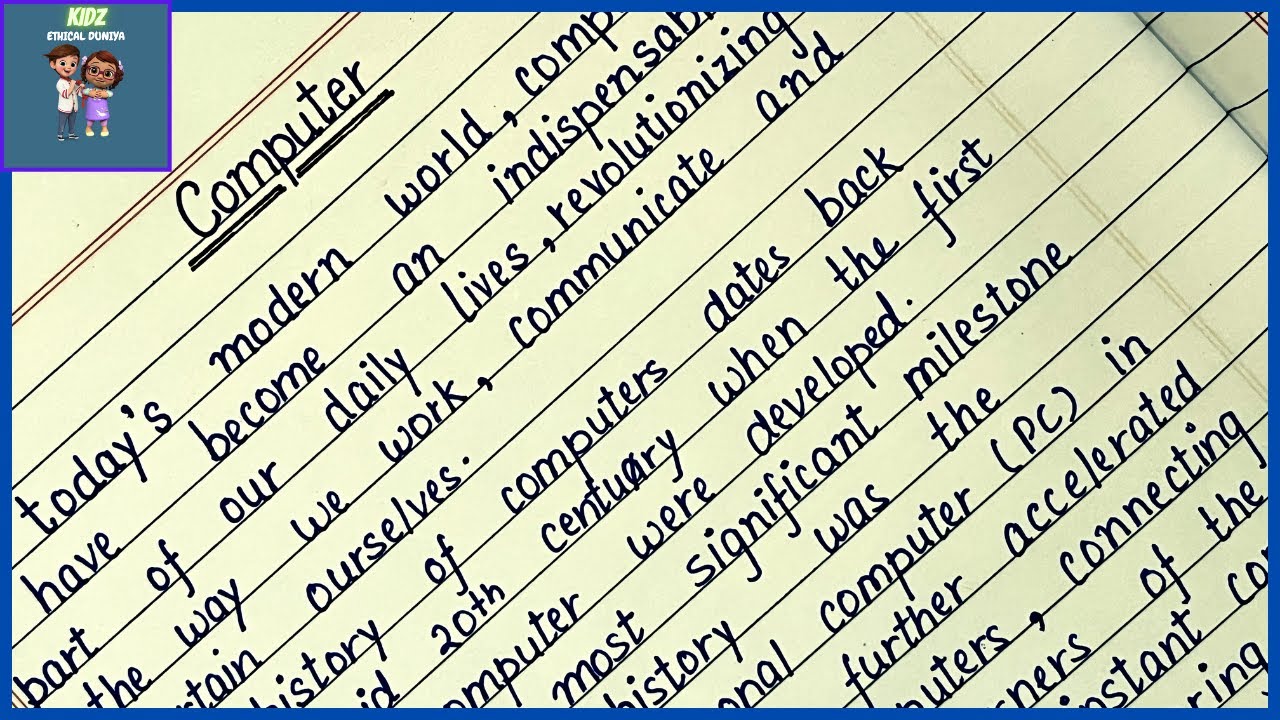 KIDZ
ETHICAL DUNIYA
Computer
today's modern world, comp
have become an indispensab
part of our daily lives, revolutionizing
the way we work, communicate and
rtain ourselves.
history of computers dates back
id 20th century when the first
omputer were developed.
most significant milestone
history was the
onal computer (PC) in
further accelerated
puters, connecting
rners of the
instant co
ring